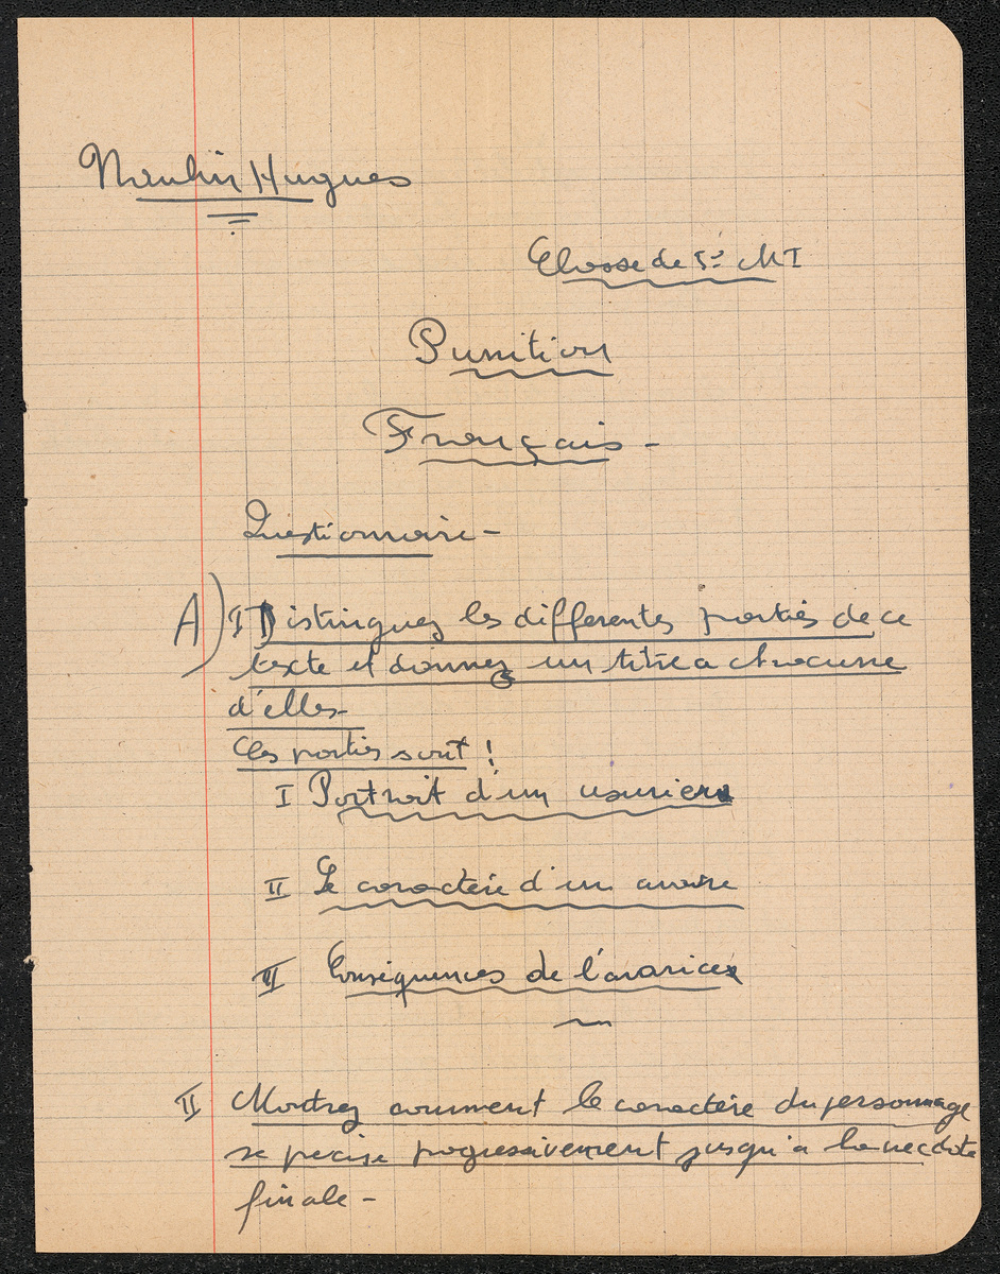 Moulin Hugues
Classe de 5e MI
Punition
Français -
Questionnaire -
A) I Distinguez les differentes parties de ce
texte et donnez un titre a chacune
d'elles
Les parties sont !
I Portrait d'un usurier
II Le caractère d'un avare
III Conséquences de l'avarice
II Montrez comment le caractère du personnage
se precise progressivement jusqu'a l'anecdote
finale -